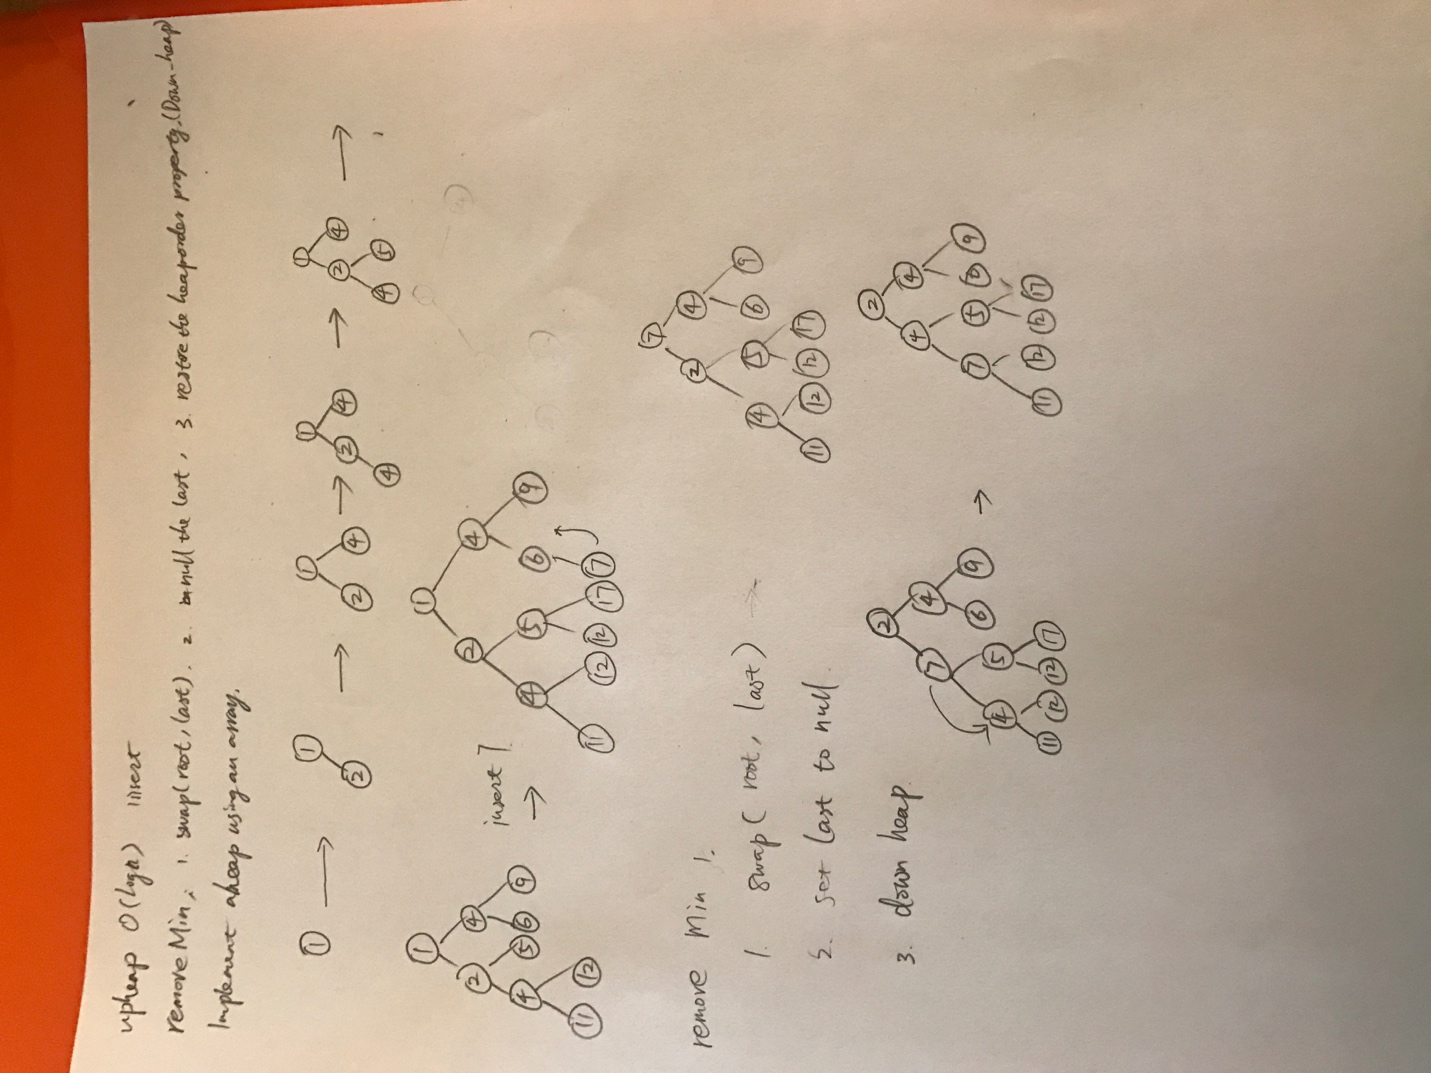 upheap O(logn) insert
remove Min: 1. swap(root, last). 2. null the last, 3. restore the heaporder property.(Down-heap)
Implement a heap using an array.
① → ① ② → ① ② ④ → ① ② ④ ④ → ① ② ④ ④ ⑤ →
① ② ④ ④ ⑤ ⑥ ⑨ ⑪ ⑫
insert 7 →
① ② ④ ④ ⑤ ⑥ ⑨ ⑪ ⑫ ⑫ ⑰ ⑦
remove Min :
1. swap( root, last) →
⑦ ② ④ ④ ⑤ ⑥ ⑨ ⑪ ⑫ ⑫ ⑰
2. set last to null.
3. down heap
② ⑦ ④ ④ ⑤ ⑥ ⑨ ⑪ ⑫ ⑫ ⑰ →
② ④ ④ ⑦ ⑤ ⑥ ⑨ ⑪ ⑫ ⑫ ⑰